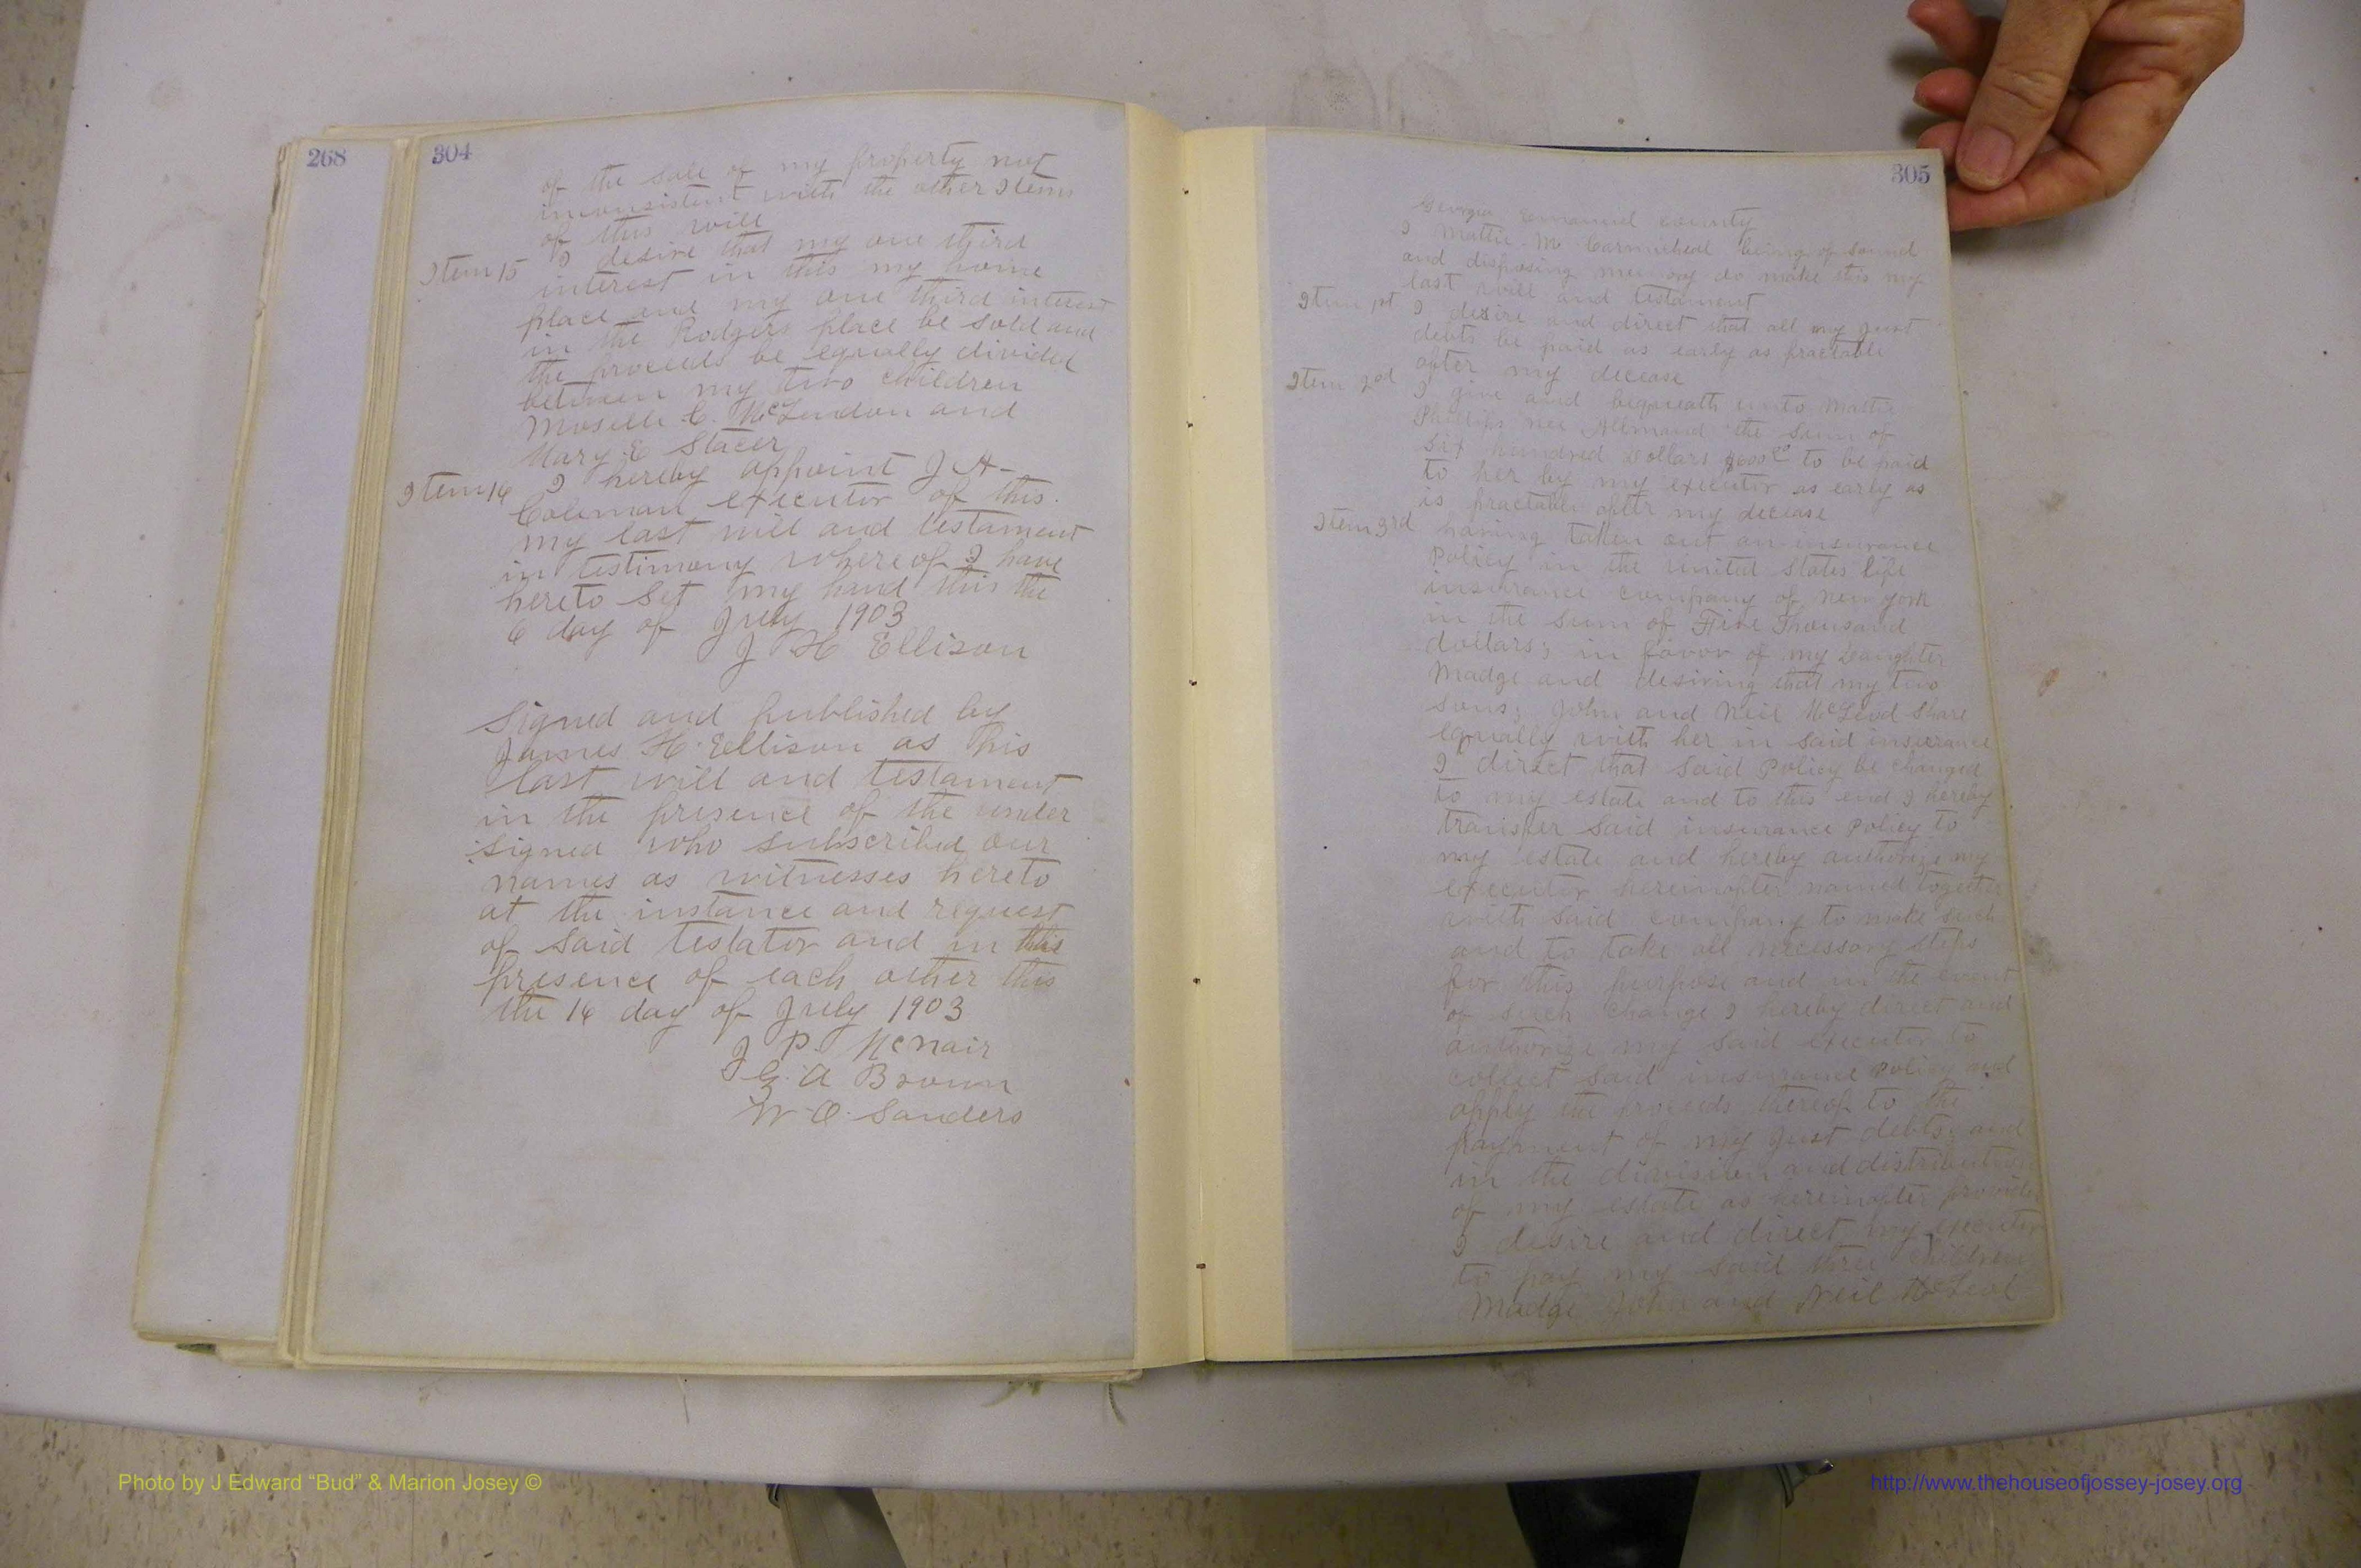 268
304
of the sale of my property not
inconsistent with the other Items
of this will
Item 15 I desire that my one third
interest in this my home
place and my one third interest
in the Rodgers place be sold and
the proceeds be equally divided
between my two children
Moselle C. McLendon and
Mary E Stacer
Item 16 I hereby appoint J A-
Coleman executor of this.
my last will and testament
in testimony where of I have
hereto set my hand this the
6 day of July 1903
J H Ellison
Signed and published by
James H. Ellison as his
last will and testament
in the presence of the under
signed who subscribed our
names as witnesses hereto
at the instance and request
of said testator and in this
presence of each other this
the 16 day of July 1903
J P. McNair
G. A Brown
W O. Sanders
305
Georgia Emanuel county
I, Mattie M Carmicheal being of sound
and disposing memory do make this my
last will and testament
Item 1st I desire and direct that all my just
debts be paid as early as practable
after my decease
Item 2nd I give and bequeath unto Mattie
Phillips nee Allmand the sum of
Six hundred Dollars $600 00 to be paid
to her by my executor as early as
is practable after my decease
Item 3rd having taken out an insurance
Policy in the united States life
insurance company of New York
in the sum of Five Thousand
dollars; in favor of my Daughter
Madge and desiring that my two
sons; John and Neil McLeod share
equally with her in said insurance
I direct that said Policy be changed
to my estate and to this end I hereby
transfer said insurance Policy to
my estate and hereby authorize my
executor hereinafter named together
with said company to make such
and to take all necessary steps
for this purpose and in the event
of such change I hereby direct and
authorize my said executor to
collect said insurance Policy and
apply the proceeds thereof to the
payment of my just debts and
in the division and distribution
of my estate as hereinafter provided
I desire and direct my executor
to pay my said three children
Madge John and Neil McLeod
Photo by J Edward “Bud” & Marion Josey ©
http://www.thehouseofjossey-josey.org